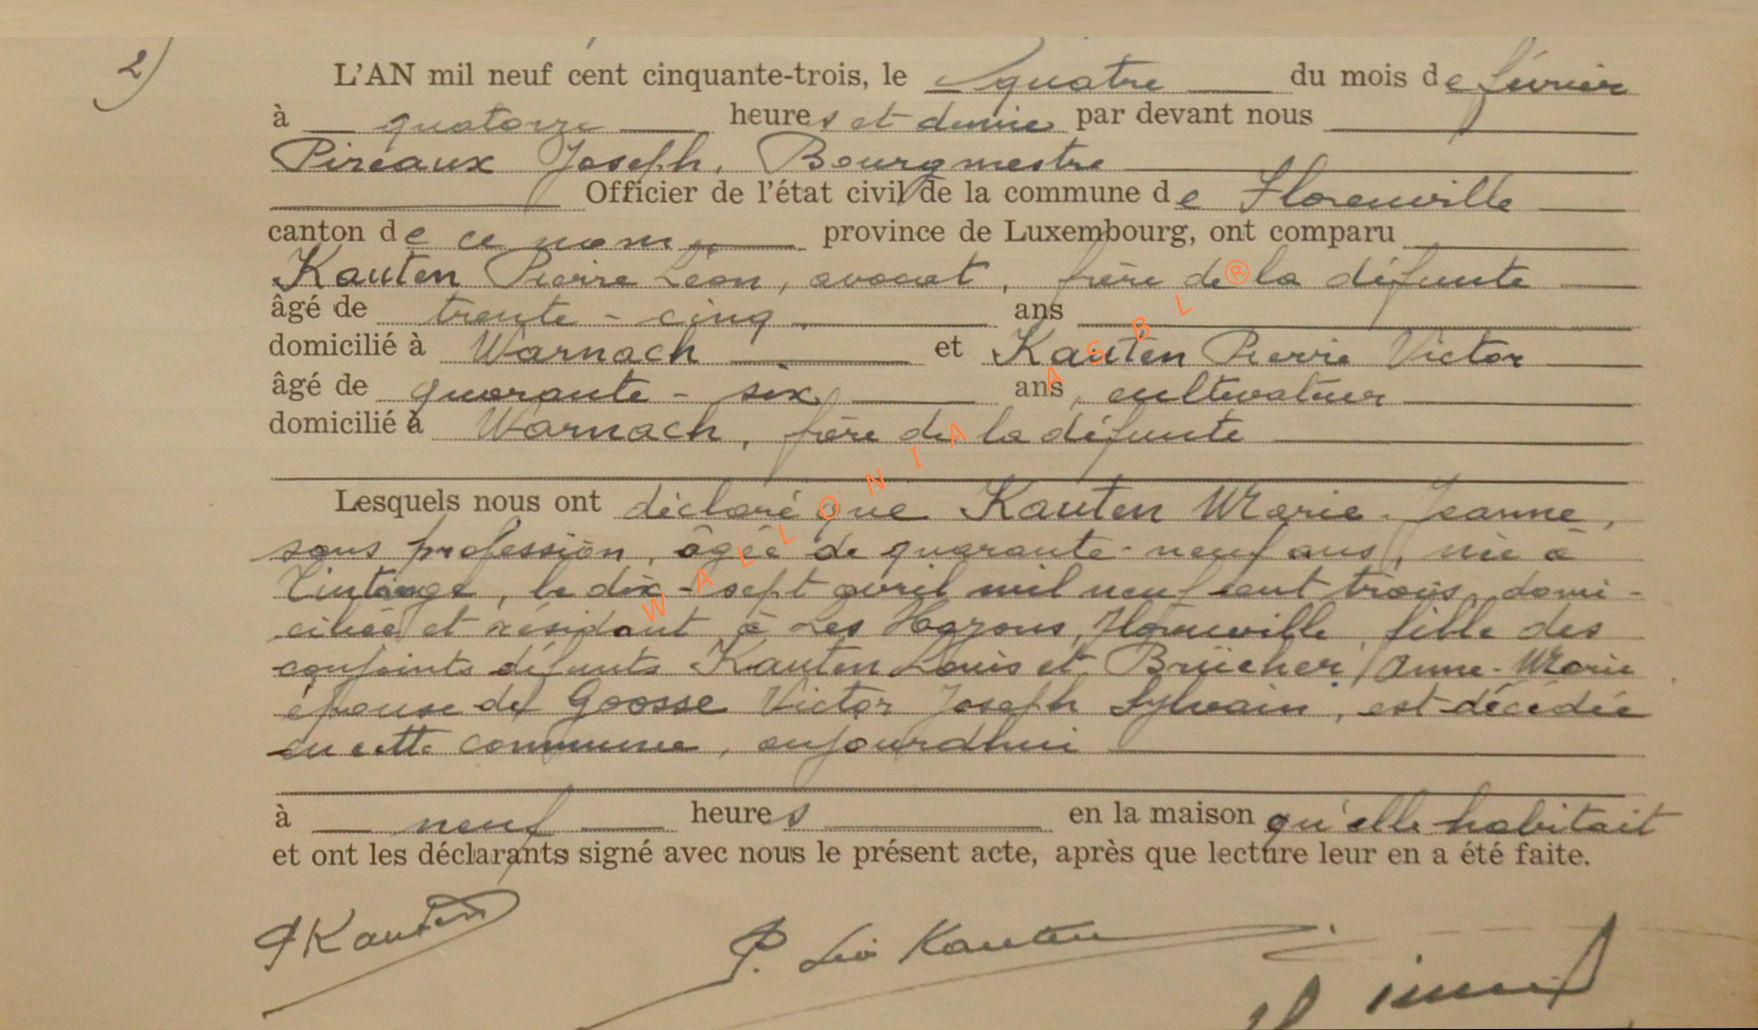 2)
L'AN mil neuf cent cinquante-trois, le quatre du mois de février
à quatorze heures et demie par devant nous
Pireaux Joseph, Bourgmestre
Officier de l'état civil de la commune de Florenville
canton de ce nom, province de Luxembourg, ont comparu
Kauten Pierre Léon, avocat, frère de la défunte
âgé de trente-cinq ans
domicilié à Warnach et Kauten Pierre Victor
âgé de quarante-six ans, cultivateur
domicilié à Warnach, frère de la défunte
Lesquels nous ont déclaré que Kauten Marie-Jeanne,
sans profession, âgée de quarante-neuf ans, née à
Tintange, le dix-sept avril mil neuf cent trois, domi-
ciliée et résidant à Les Hayons, Florenville, fille des
conjoints défunts Kauten Louis et Brücher Anne-Marie
épouse de Goosse Victor Joseph Sylvain, est décédée
en cette commune, aujourd'hui
à neuf heures en la maison qu'elle habitait
et ont les déclarants signé avec nous le présent acte, après que lecture leur en a été faite.
Kauten
P. Léon Kauten
WALLONIA ASBL ®